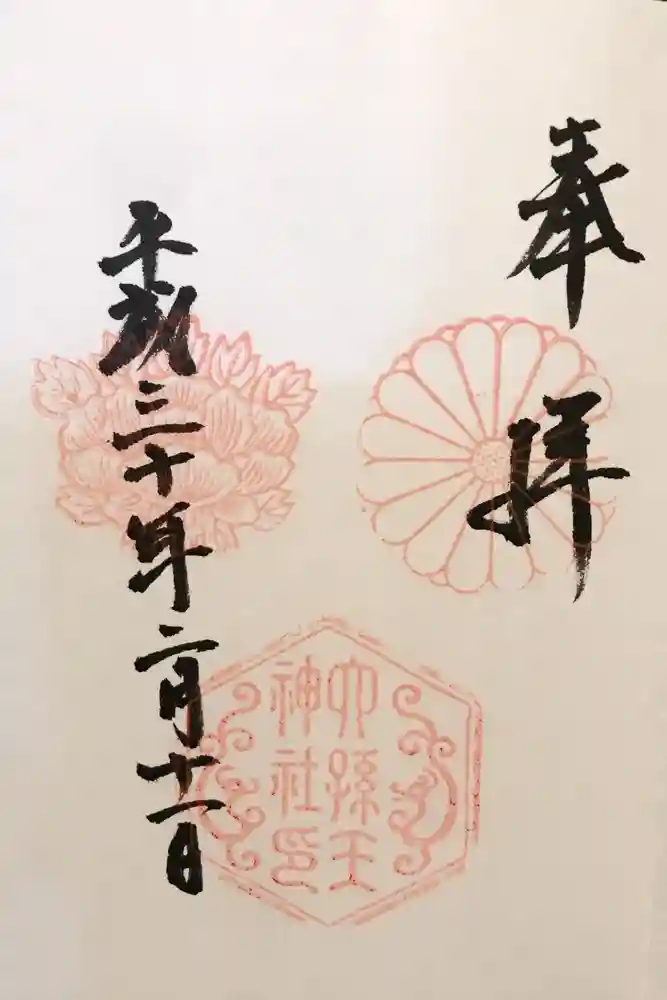 奉拝
平成三十年二月十一日
六孫王
神社印